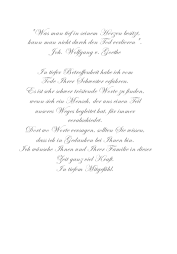 "Was man tief in seinem Herzen besitzt,
kann man nicht durch den Tod verlieren".
Joh. Wolfgang v. Goethe
In tiefer Betroffenheit habe ich vom
Tode Ihrer Schwester erfahren.
Es ist sehr schwer tröstende Worte zu finden,
wenn sich ein Mensch, der uns einen Teil
unseres Weges begleitet hat, für immer
verabschiedet.
Dort wo Worte versagen, sollten Sie wissen,
dass ich in Gedanken bei Ihnen bin.
Ich wünsche Ihnen und Ihrer Familie in dieser
Zeit ganz viel Kraft.
In tiefem Mitgefühl,